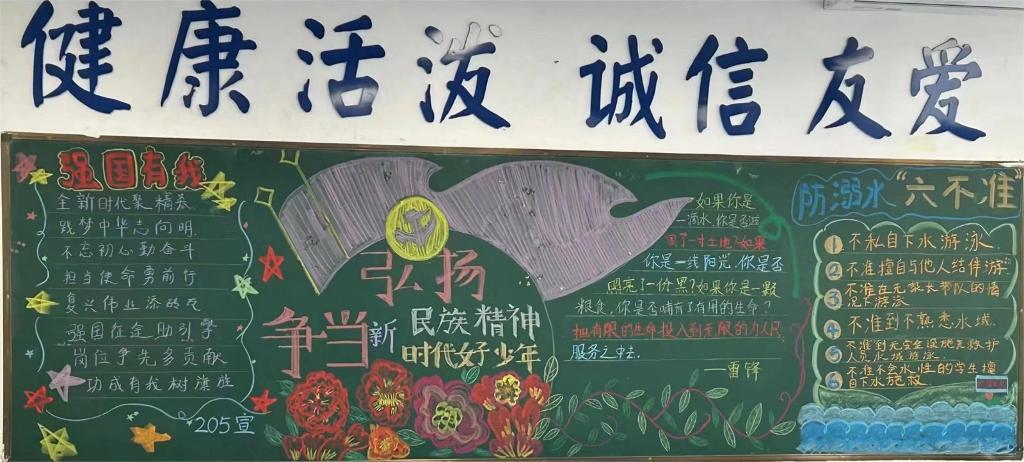 健康活泼 诚信友爱
强国有我
全新时代聚精养
践梦中华志向明
不忘初心勤奋斗
担当使命勇前行
复兴伟业添
强国在
岗位争先多贡献
功成有我树旗
205宣
弘扬
民族精神
争当新
时代好少年
如果你是
一滴水,你是否滋
润了一寸土地?如果
你是一线阳光,你是否
照亮了一份黑?如果你是一颗
粮食,你是否哺育了有用的生命?
把有限的生命投入到无限的为人民
服务之中去.
——雷锋
防溺水“六不准”
1 不私自下水游泳
2 不准擅自与他人结伴游
3 不准在无家长带队的情
况下游泳
4 不准到不熟悉水域.
5 不准到无安全设施无救护
人员水域游泳.
6 不准不会水性的学生擅
自下水施救